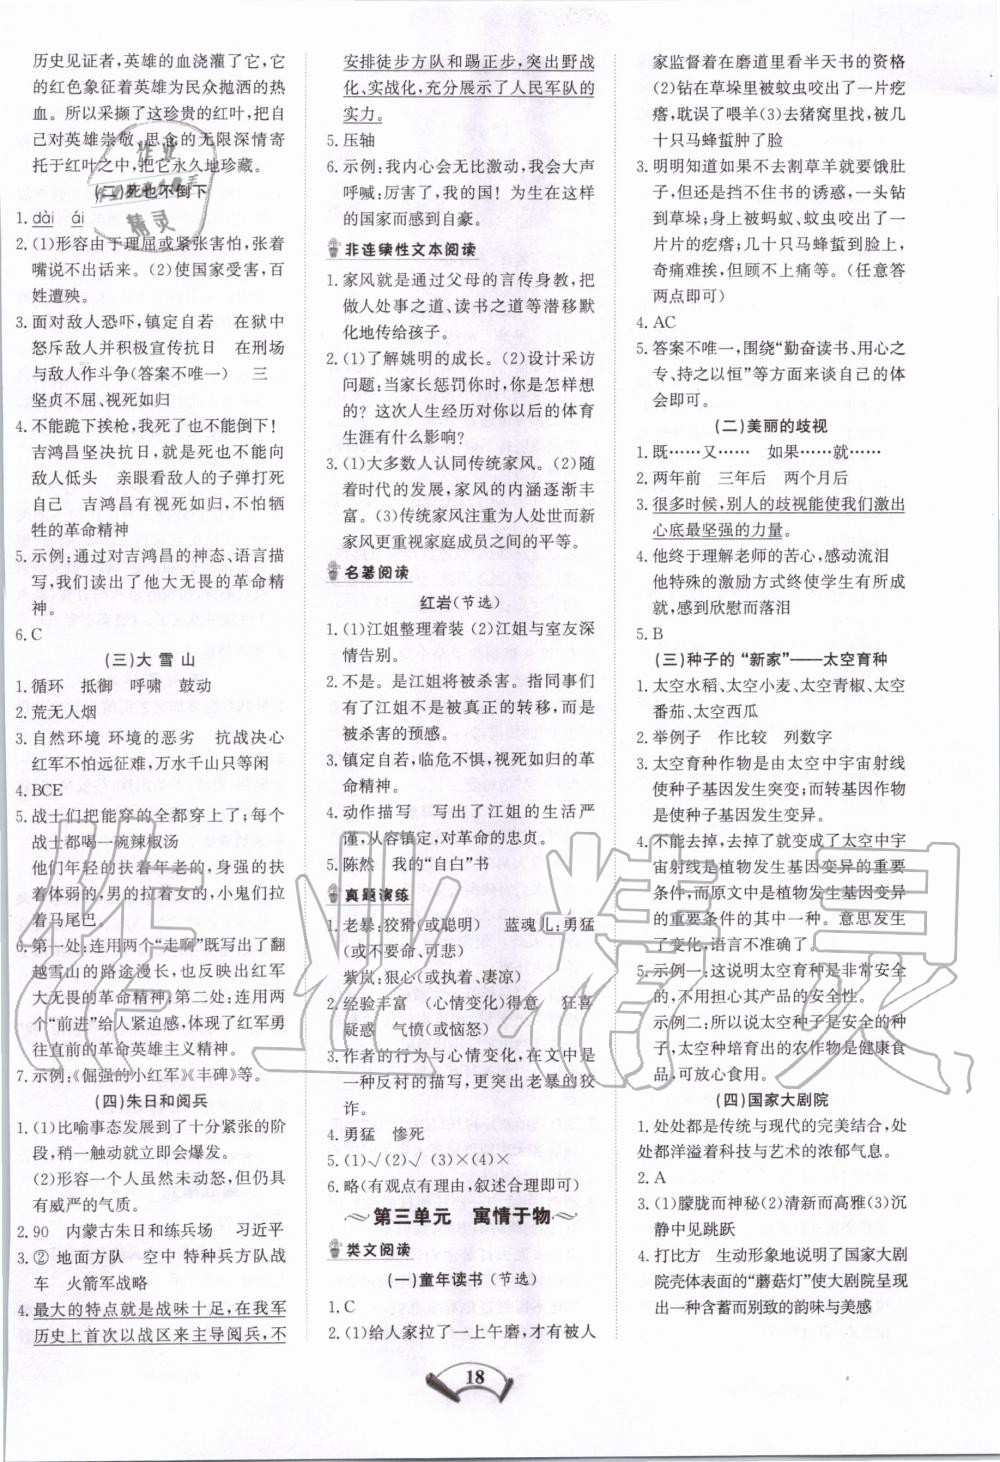 历史见证者,英雄的血浇灌了它,它
的红色象征着英雄为民众抛洒的热
血。所以采撷了这珍贵的红叶,把自
己对英雄崇敬、思念的无限深情寄
托于红叶之中,把它永久地珍藏。
(二)死也不倒下
1. dài ái
2. (1)形容由于理屈或紧张害怕,张着
嘴说不出话来。(2)使国家受害,百
姓遭殃。
3. 面对敌人恐吓,镇定自若 在狱中
怒斥敌人并积极宣传抗日 在刑场
与敌人作斗争(答案不唯一) 三
坚贞不屈、视死如归
4. 不能跪下挨枪,我死了也不能倒下!
吉鸿昌坚决抗日,就是死也不能向
敌人低头 亲眼看敌人的子弹打死
自己 吉鸿昌有视死如归,不怕牺
牲的革命精神
5. 示例:通过对吉鸿昌的神态、语言描
写,我们读出了他大无畏的革命精
神。
6. C
(三)大 雪 山
1. 循环 抵御 呼啸 鼓动
2. 荒无人烟
3. 自然环境 环境的恶劣 抗战决心
红军不怕远征难,万水千山只等闲
4. BCE
5. 战士们把能穿的全都穿上了;每个
战士都喝一碗辣椒汤
他们年轻的扶着年老的,身强的扶
着体弱的,男的拉着女的,小鬼们拉
着马尾巴。
6. 第一处:连用两个“走啊”既写出了翻
越雪山的路途漫长,也反映出红军
大无畏的革命精神;第二处:连用两
个“前进”给人紧迫感,体现了红军勇
往直前的革命英雄主义精神。
7. 示例:《倔强的小红军》《丰碑》等。
(四)朱日和阅兵
1. (1)比喻事态发展到了十分紧张的阶
段,稍一触动就立即会爆发。
(2)形容一个人虽然未动怒,但仍具
有威严的气质。
2. 90 内蒙古朱日和练兵场 习近平
3. ② 地面方队 空中 特种兵方队战
车 火箭军战略
4. 最大的特点就是战味十足,在我军
历史上首次以战区来主导阅兵,不
安排徒步方队和踢正步,突出野战
化、实战化,充分展示了人民军队的
实力。
5. 压轴
6. 示例:我内心会无比激动,我会大声
呼喊:厉害了,我的国! 为生在这样
的国家而感到自豪。
非连续性文本阅读
1. 家风就是通过父母的言传身教,把
做人处事之道、读书之道等潜移默
化地传给孩子。
2. (1)了解姚明的成长。(2)设计采访
问题:当家长惩罚你时,你是怎样想
的? 这次人生经历对你以后的体育
生涯有什么影响?
3. (1)大多数人认同传统家风。(2)随
着时代的发展,家风的内涵逐渐丰
富。(3)传统家风注重为人处世而新
家风更重视家庭成员之间的平等。
名著阅读
红岩(节选)
1. (1)江姐整理着装 (2)江姐与室友深
情告别。
2. 不是。是江姐将被杀害。指同事们
有了江姐不是被真正的转移,而是
被杀害的预感。
3. 镇定自若,临危不惧,视死如归的革
命精神。
4. 动作描写 写出了江姐的生活严
谨,从容镇定,对革命的忠贞。
5. 陈然 我的“自白”书
真题演练
1. 老暴:狡猾(或聪明) 蓝魂儿:勇猛
(或不要命、可悲)
紫岚:狠心(或执着、凄凉)
2. 经验丰富 (心情变化)得意 狂喜
疑惑 气愤(或恼怒)
3. 作者的行为与心情变化,在文中是
一种反衬的描写,更突出老暴的狡
诈。
4. 勇猛 惨死
5. (1)√(2)√(3)×(4)×
6. 略(有观点有理由,叙述合理即可)
第三单元 寓情于物
类文阅读
(一)童年读书(节选)
1. C
2. (1)给人家拉了一上午磨,才有被人
家监督着在磨道里看半天书的资格
(2)钻在草垛里被蚊虫咬出了一片疙
瘩,耽误了喂羊(3)去猪窝里找,被几
十只马蜂蜇肿了脸
3. 明明知道如果不去割草羊就要饿肚
子,但还是挡不住书的诱惑,一头钻
到草垛;身上被蚂蚁、蚊虫咬出了一
片片的疙瘩;几十只马蜂蜇到脸上,
奇痛难挨,但一看书就忘等。(任意答
两点即可)
4. AC
5. 答案不唯一,围绕“勤奋读书、用心之
专、持之以恒”等方面来谈自己的体
会即可。
(二)美丽的歧视
1. 既……又…… 如果……就……
2. 两年前 三年后 两个月后
3. 很多时候,别人的歧视能使我们激出
心底最坚强的力量。
4. 他终于理解老师的苦心,感动流泪
他特殊的激励方式终使学生有所成
就,感到欣慰而落泪
5. B
(三)种子的“新家”——太空育种
1. 太空水稻、太空小麦、太空青椒、太空
番茄、太空西瓜
2. 举例子 作比较 列数字
3. 太空育种作物是由太空中宇宙射线
使种子基因发生突变;而转基因作物
是使基因发生变异。
4. 不能去掉,去掉了就变成了太空中宇
宙射线是植物发生基因变异的重要
条件,而原文中是植物发生基因变异
的重要条件的其中一种。意思发生
了变化,语言不准确。
5. 示例一:这说明太空育种是非常安全
的,不用担心其产品的安全性。
示例二:所以说太空种子是安全的种
子,太空种培育出的农作物是健康食
品,可放心食用。
(四)国家大剧院
1. 处处都是传统与现代的完美结合,处
处都洋溢着科技与艺术的浓郁气息。
2. A
3. (1)朦胧而神秘(2)清新而高雅(3)沉
静中见跳跃
4. 打比方 生动形象地说明了国家大剧
院壳体表面的“蘑菇灯”使大剧院呈现
出一种含蓄而别致的韵味与美感
18
作业精灵